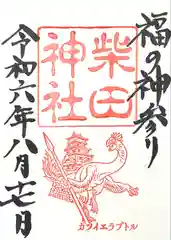 福の神参り
柴田
神社
令和六年八月十七日
フクイエラプトル